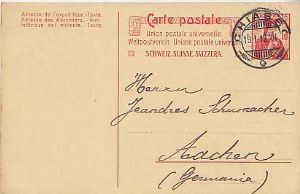 Carte postale
Union postale universelle.
Weltpostverein. Unione postale universale.
SCHWEIZ. SUISSE. SVIZZERA.
Adresse de l'expéditeur - Texte.
Adresse des Absenders - Text.
Indirizzo del mittente - Testo.
Herrn
Jeandres Schumacher
Aachen
(Germania)